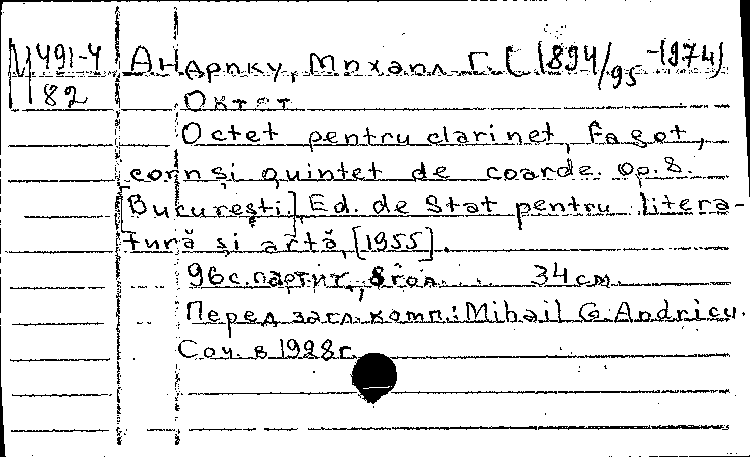 М 491-4 Андрику, Михаил Г. (1894/95-1974)
82 Октет
Octet pentru clarinet, fagot,
corn şi quintet de coarde. Op. 8.
[Bucureşti], Ed. de Stat pentru litera-
tură şi artă, [1955].
96 с. партит., 8 гол. 34 см.
Перед загл. комп.: Mihail G. Andricu.
Соч. в 1928 г.